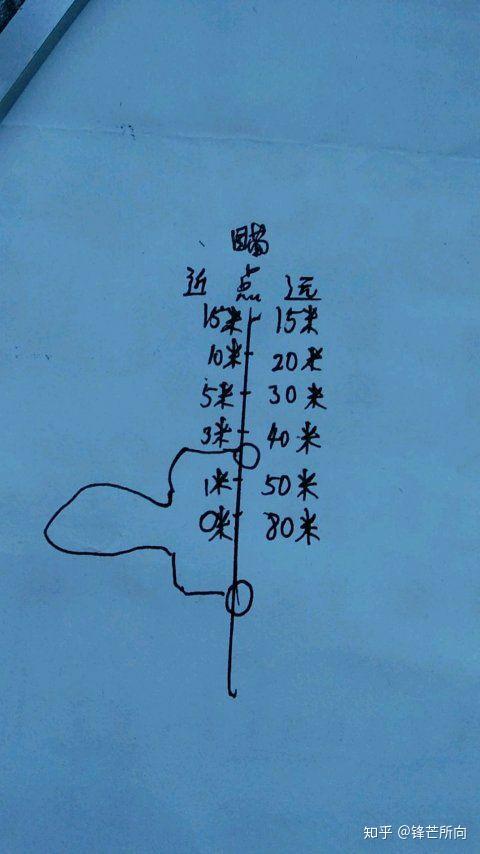 近 点 远
15米 15米
10米 20米
5米 30米
3米 40米
1米 50米
0米 80米
知乎 @锋芒所向